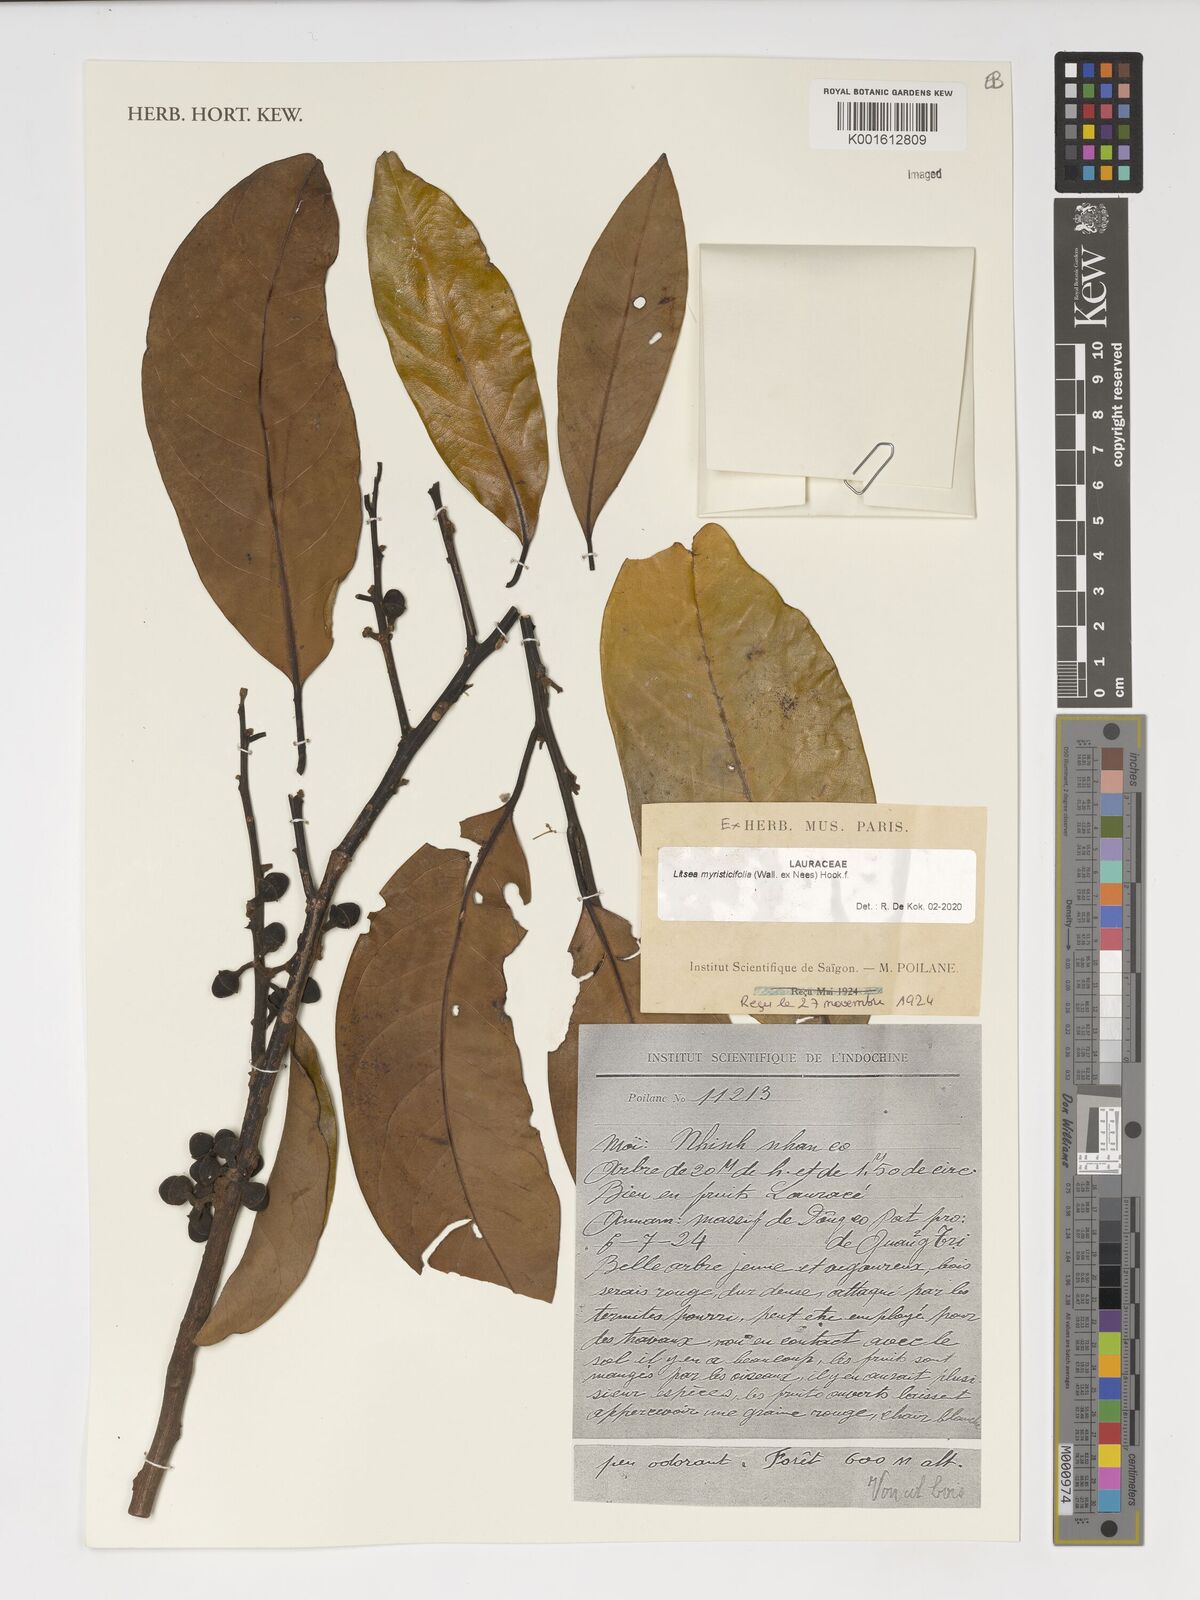 HERB. HORT. KEW.
ROYAL BOTANIC GARDENS KEW
K001612809
Imaged
EB
Ex HERB. MUS. PARIS.
LAURACEAE
Litsea myristicifolia (Wall. ex Nees) Hook.f.
Det. : R. De Kok. 02-2020
Institut Scientifique de Saïgon. — M. POILANE.
Reçu Mai 1924
Reçu le 27 novembre 1924
INSTITUT SCIENTIFIQUE DE L'INDOCHINE
Poilane No 11213
Moï: Nhinh nhan co
Arbre de 20M de h. et de 1M50 de circ
Bien en fruits Lauracé
Annam: massif de Dông co Pat pro:
6-7-24 de Quang Tri
Belle arbre jeune et vigoureux, bois
serais rouge, dur dense, attaqué par les
termites pourri, peut etre employé pour
des travaux non en contact avec le
sol il y en a beaucoup, les fruits sont
mangés par les oiseaux, il y en aurait plusi
sieur espèces, les fruits ouverts laissent
appercevoir une graine rouge, chair blanche
peu odorant. Forêt 600 M alt.
bois
Kew
Royal Botanic Gardens
copyright reserved
0 1 2 3 4 5 6 7 8 9 10
cm
inches
centimeters
Density
Don Williams
M000974